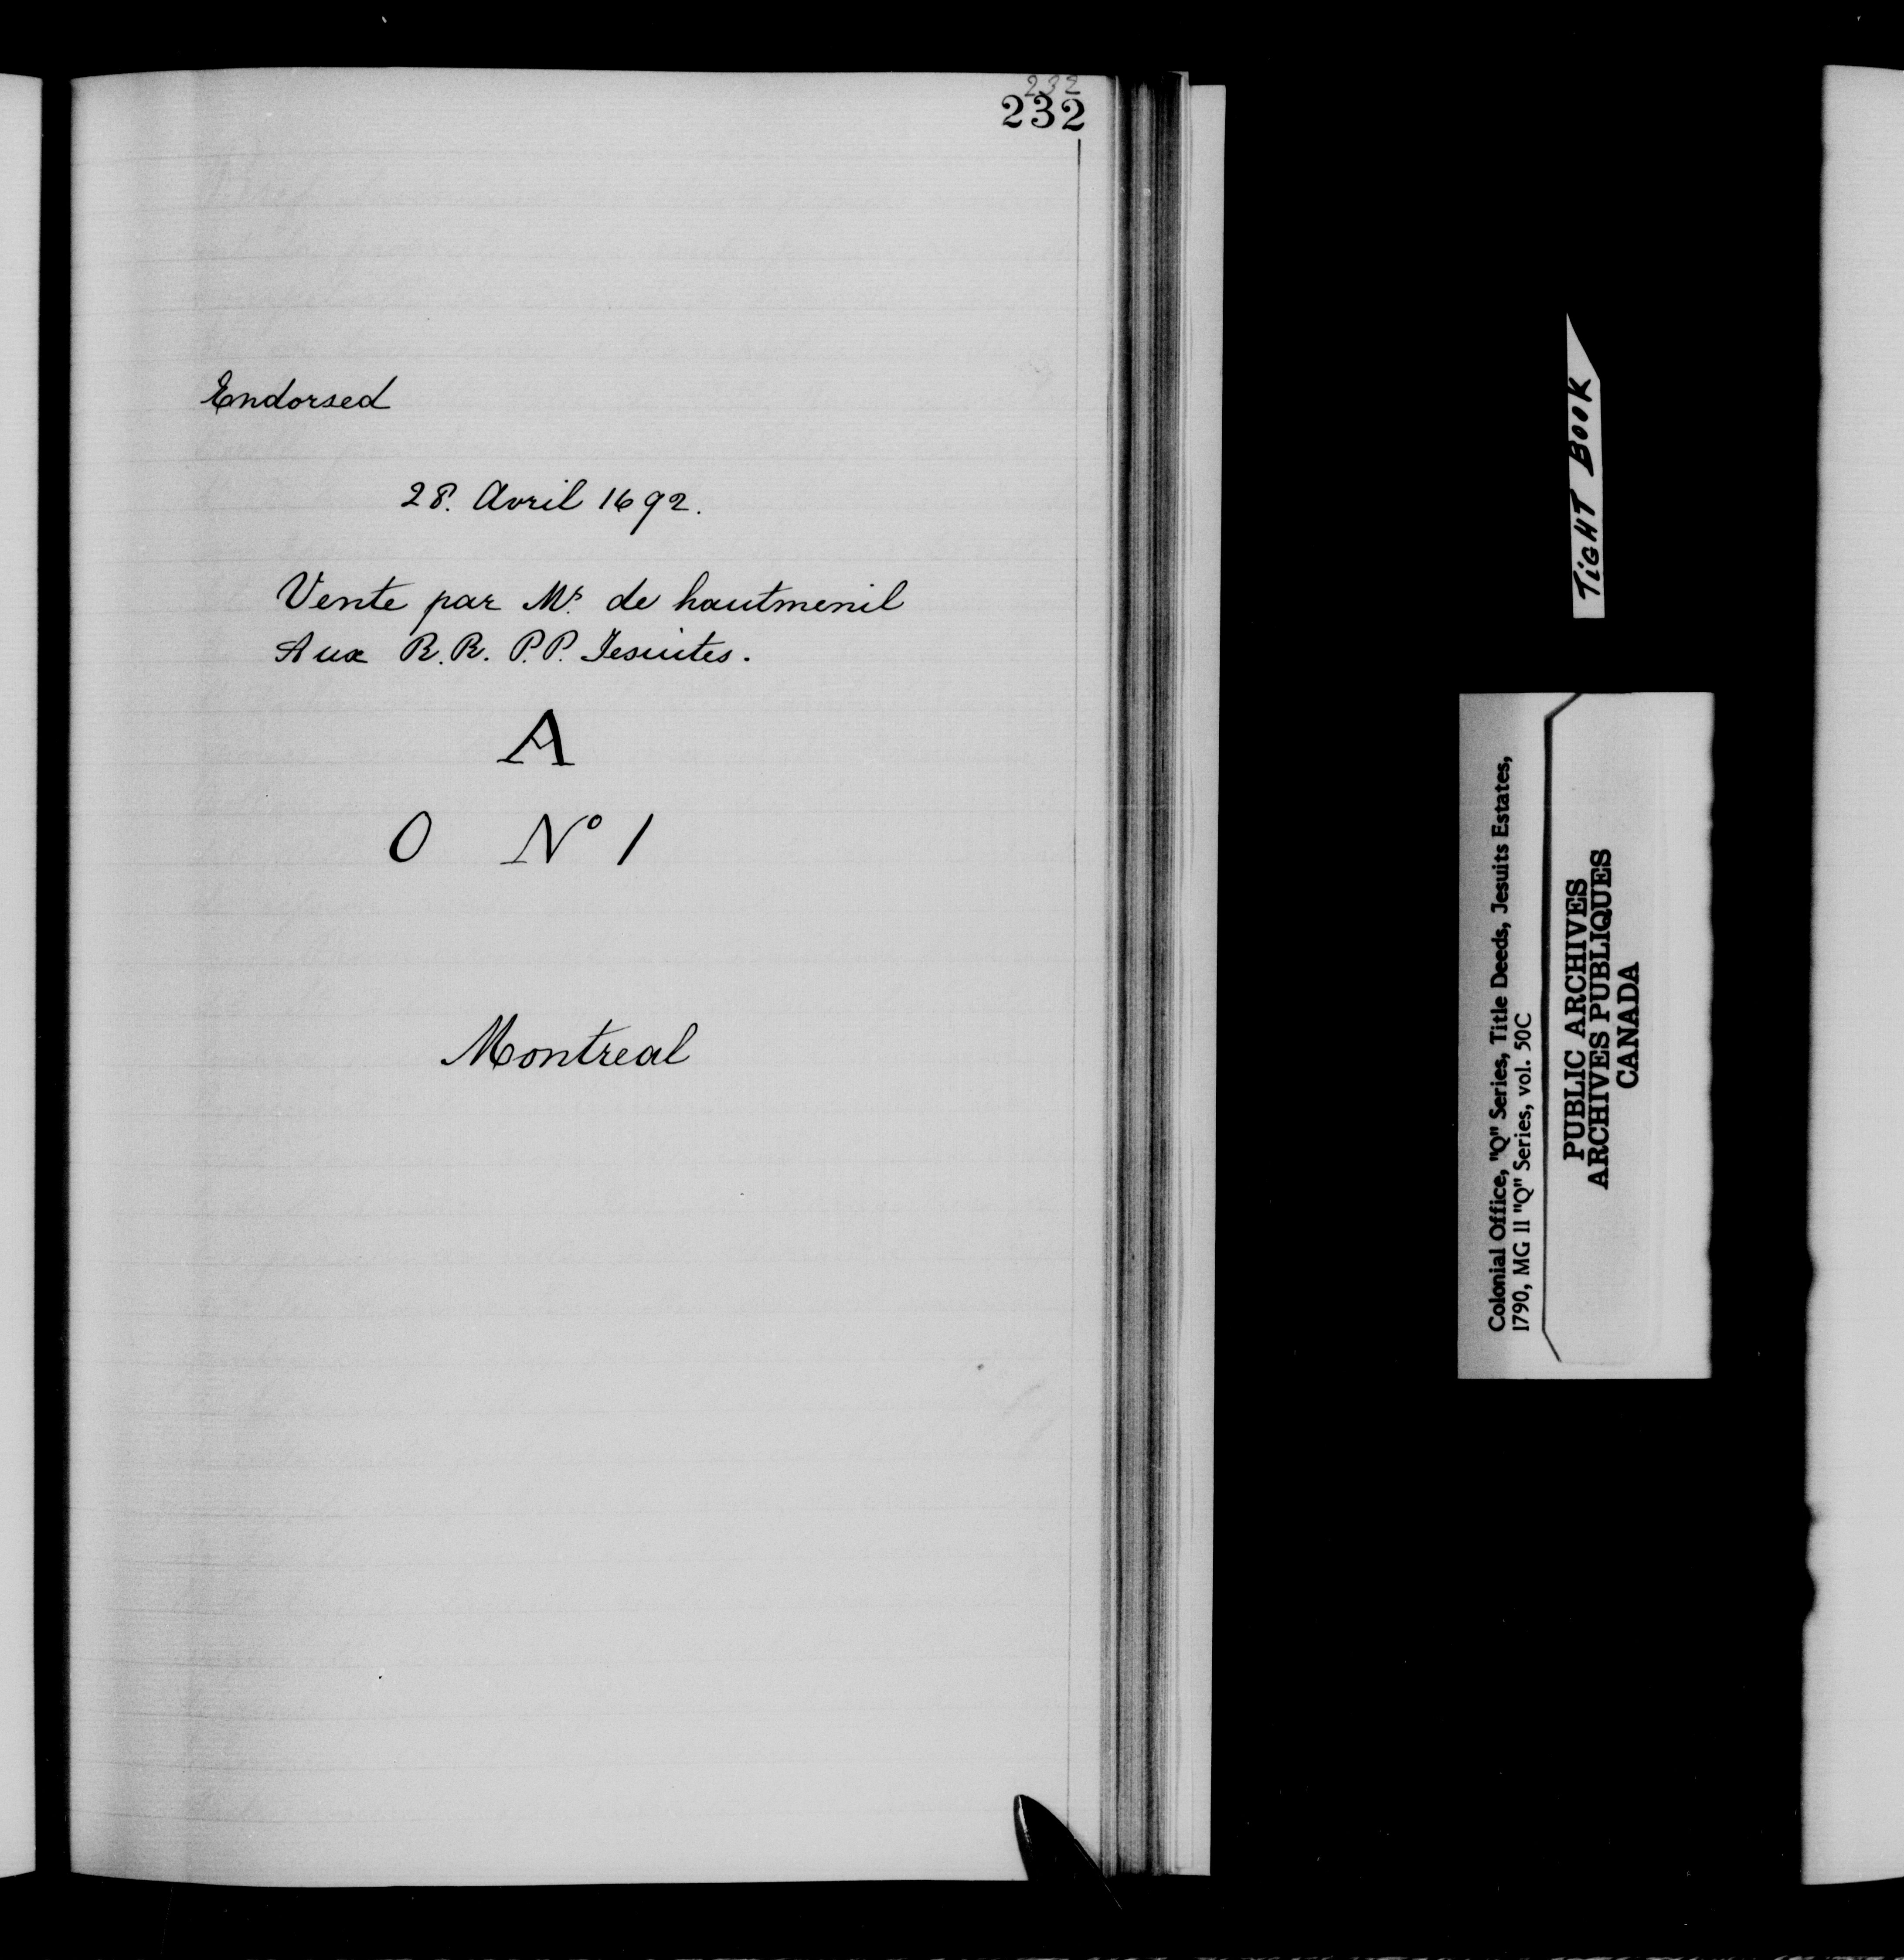 232
232
Endorsed
28. Avril 1692.
Vente par Mr. de hautmenil
Aux R.R. P.P. Jesuites.
A
O No 1
Montreal
TIGHT BOOK
Colonial Office, "Q" Series, Title Deeds, Jesuits Estates,
1790, MG 11 "Q" Series, vol. 50C
PUBLIC ARCHIVES
ARCHIVES PUBLIQUES
CANADA